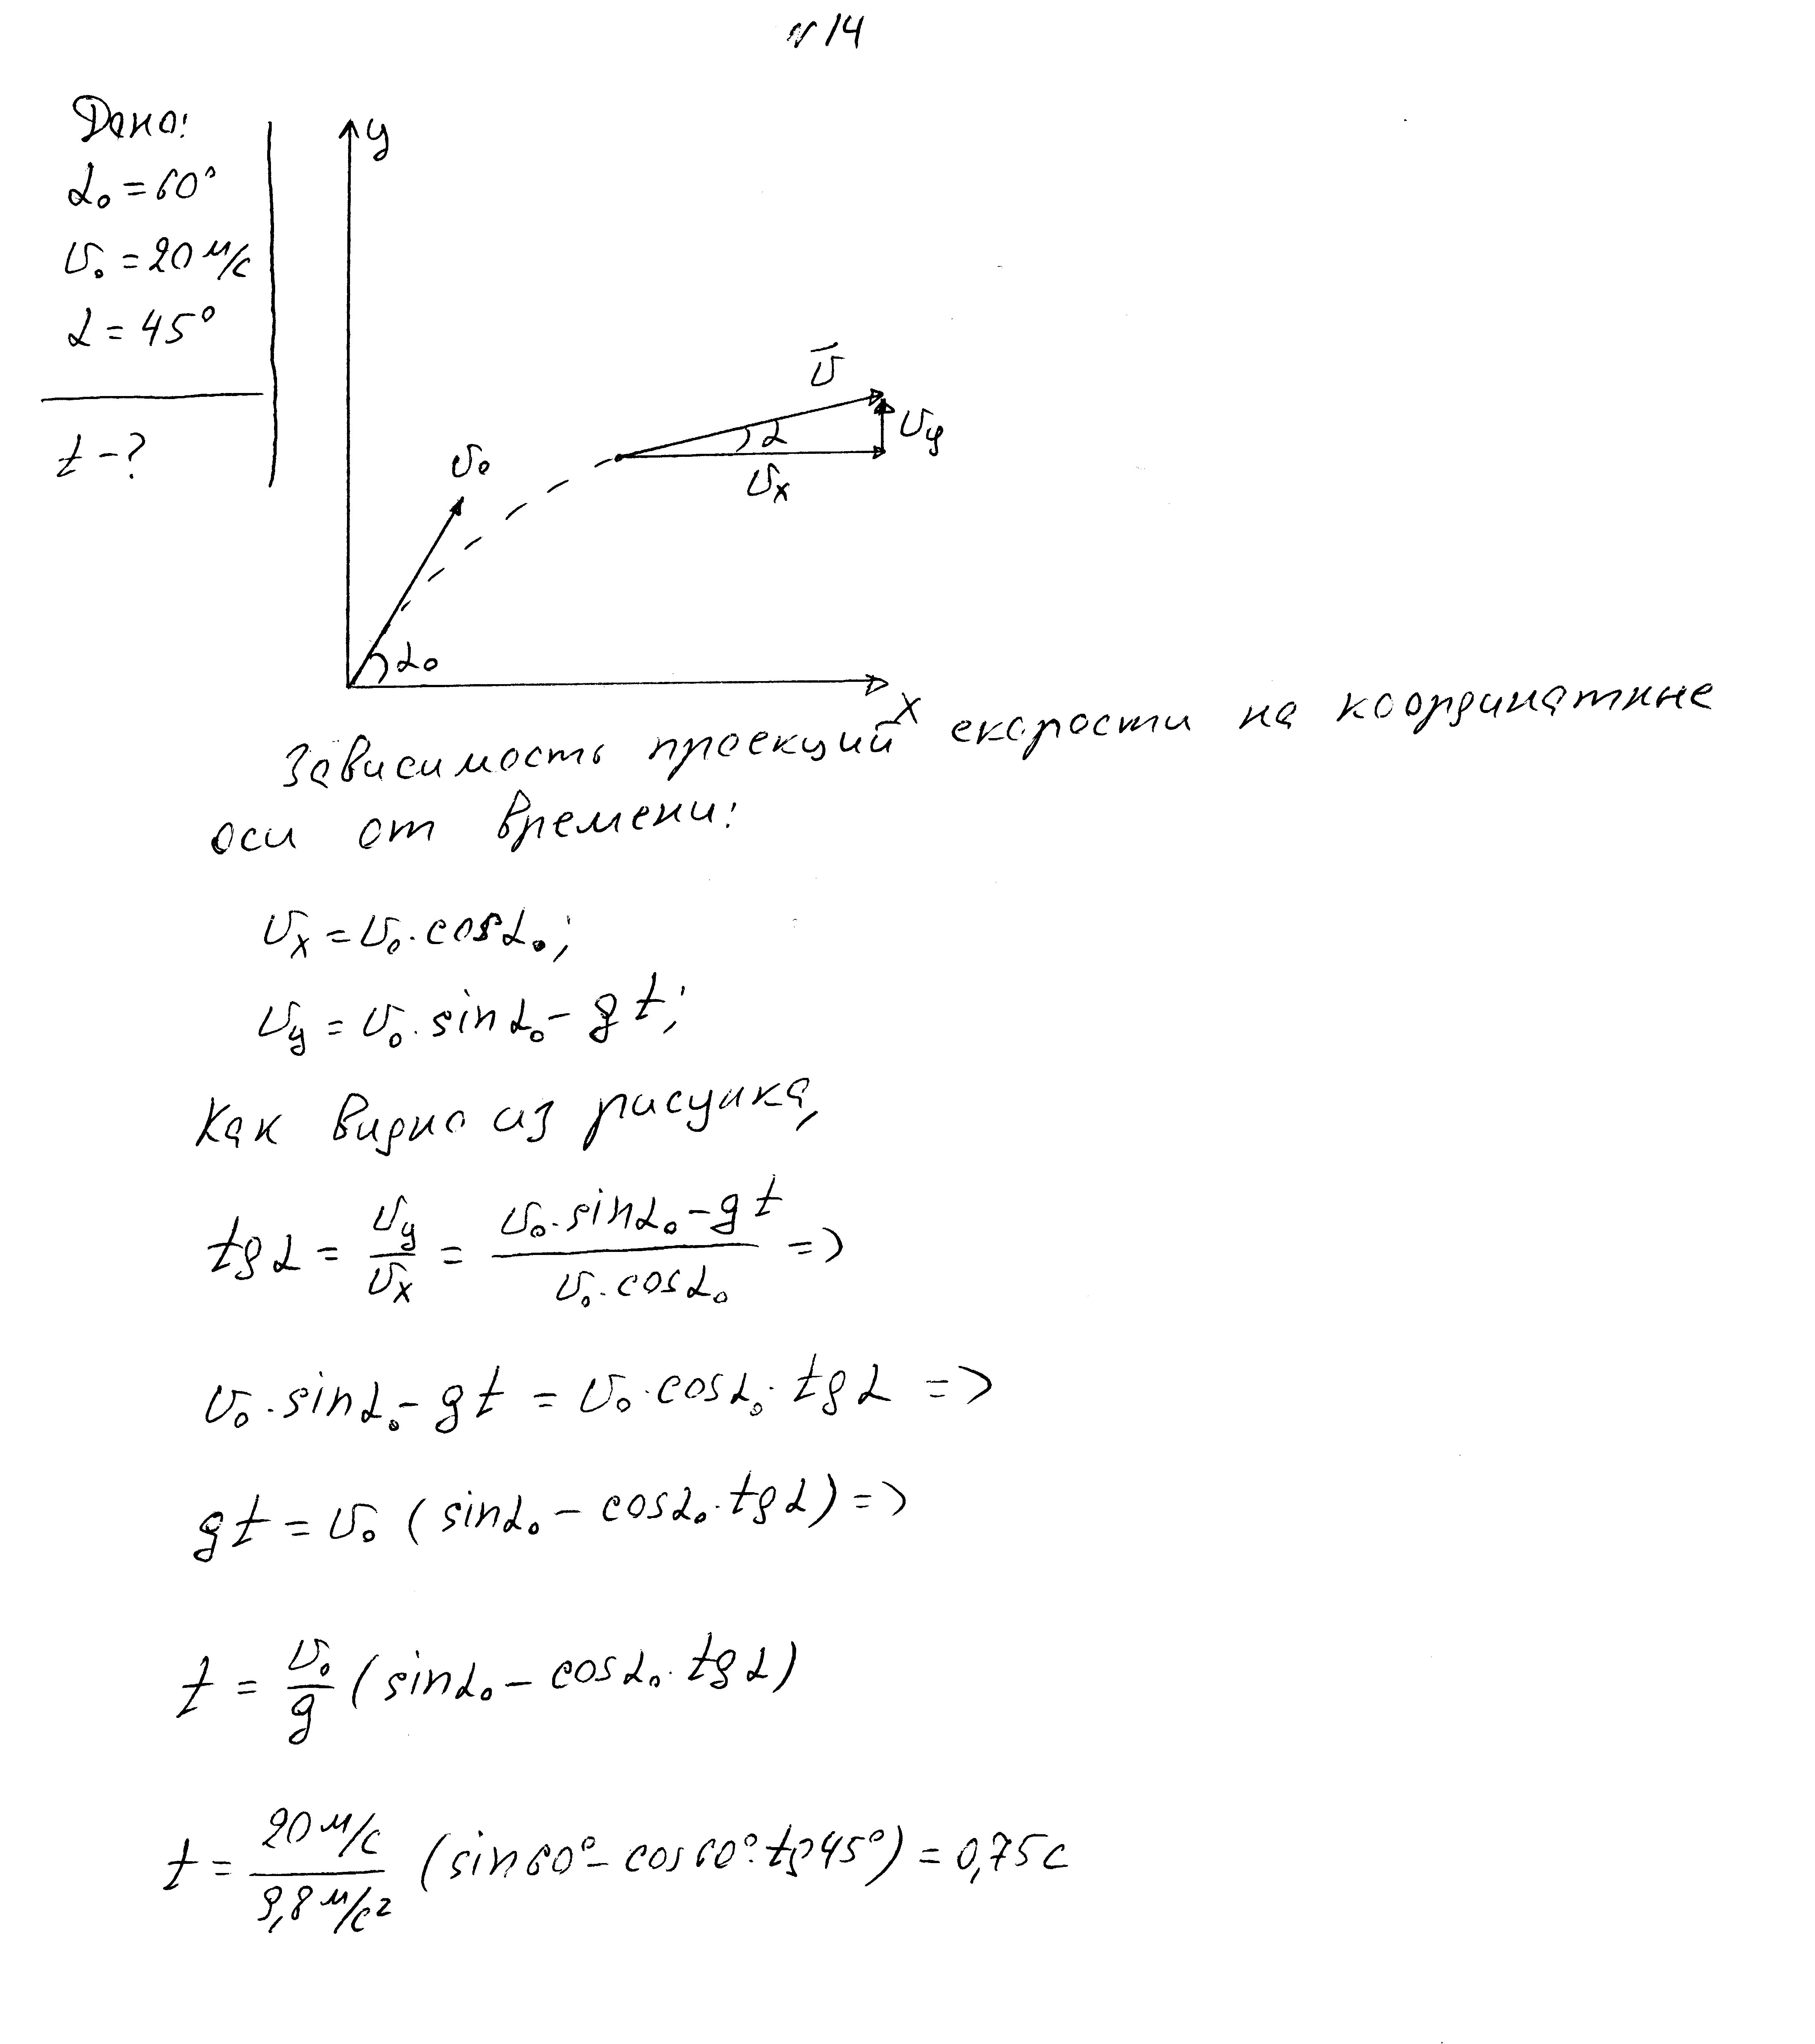 №14
Дано:
α₀ = 60°
υ₀ = 20 м/с
α = 45°
t - ?
y
υ₀
α₀
x
υ̅
α
υy
υx
Зависимость проекций скорости на координатные
оси от времени:
υx = υ₀·cosα₀;
υy = υ₀·sinα₀ - gt;
Как видно из рисунка,
tgα = υy/υx = (υ₀·sinα₀ - gt)/(υ₀·cosα₀) =>
υ₀·sinα₀ - gt = υ₀·cosα₀·tgα =>
gt = υ₀(sinα₀ - cosα₀·tgα) =>
t = υ₀/g (sinα₀ - cosα₀·tgα)
t = (20 м/с)/(9,8 м/с²) (sin60° - cos60°·tg45°) = 0,75 с